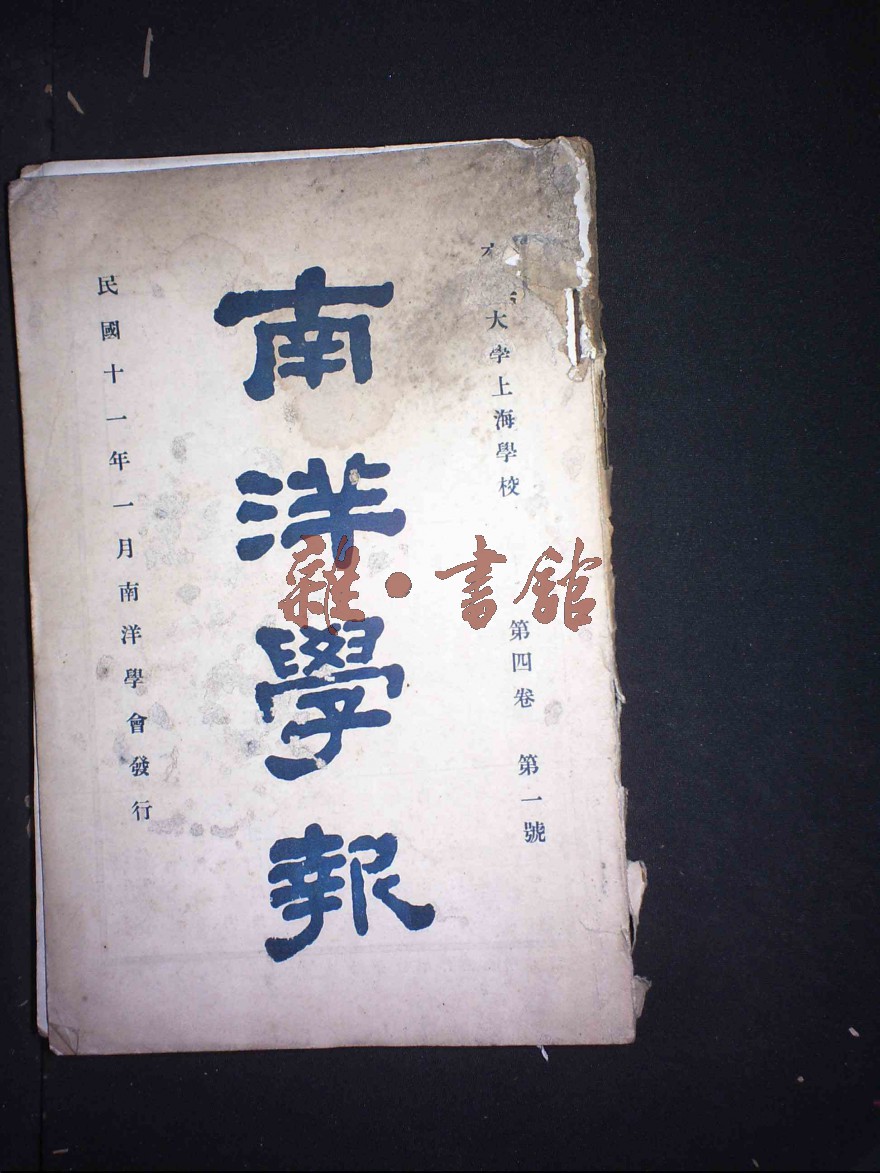 大學上海學校 第四卷 第一號
南洋學報
民國十一年一月南洋學會發行
雜·書館